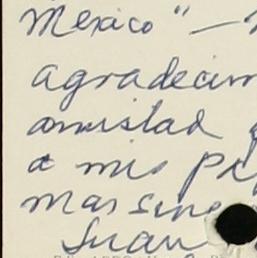 Mexico" —
agradecim
amistad
a mis
mas sinc
Juan